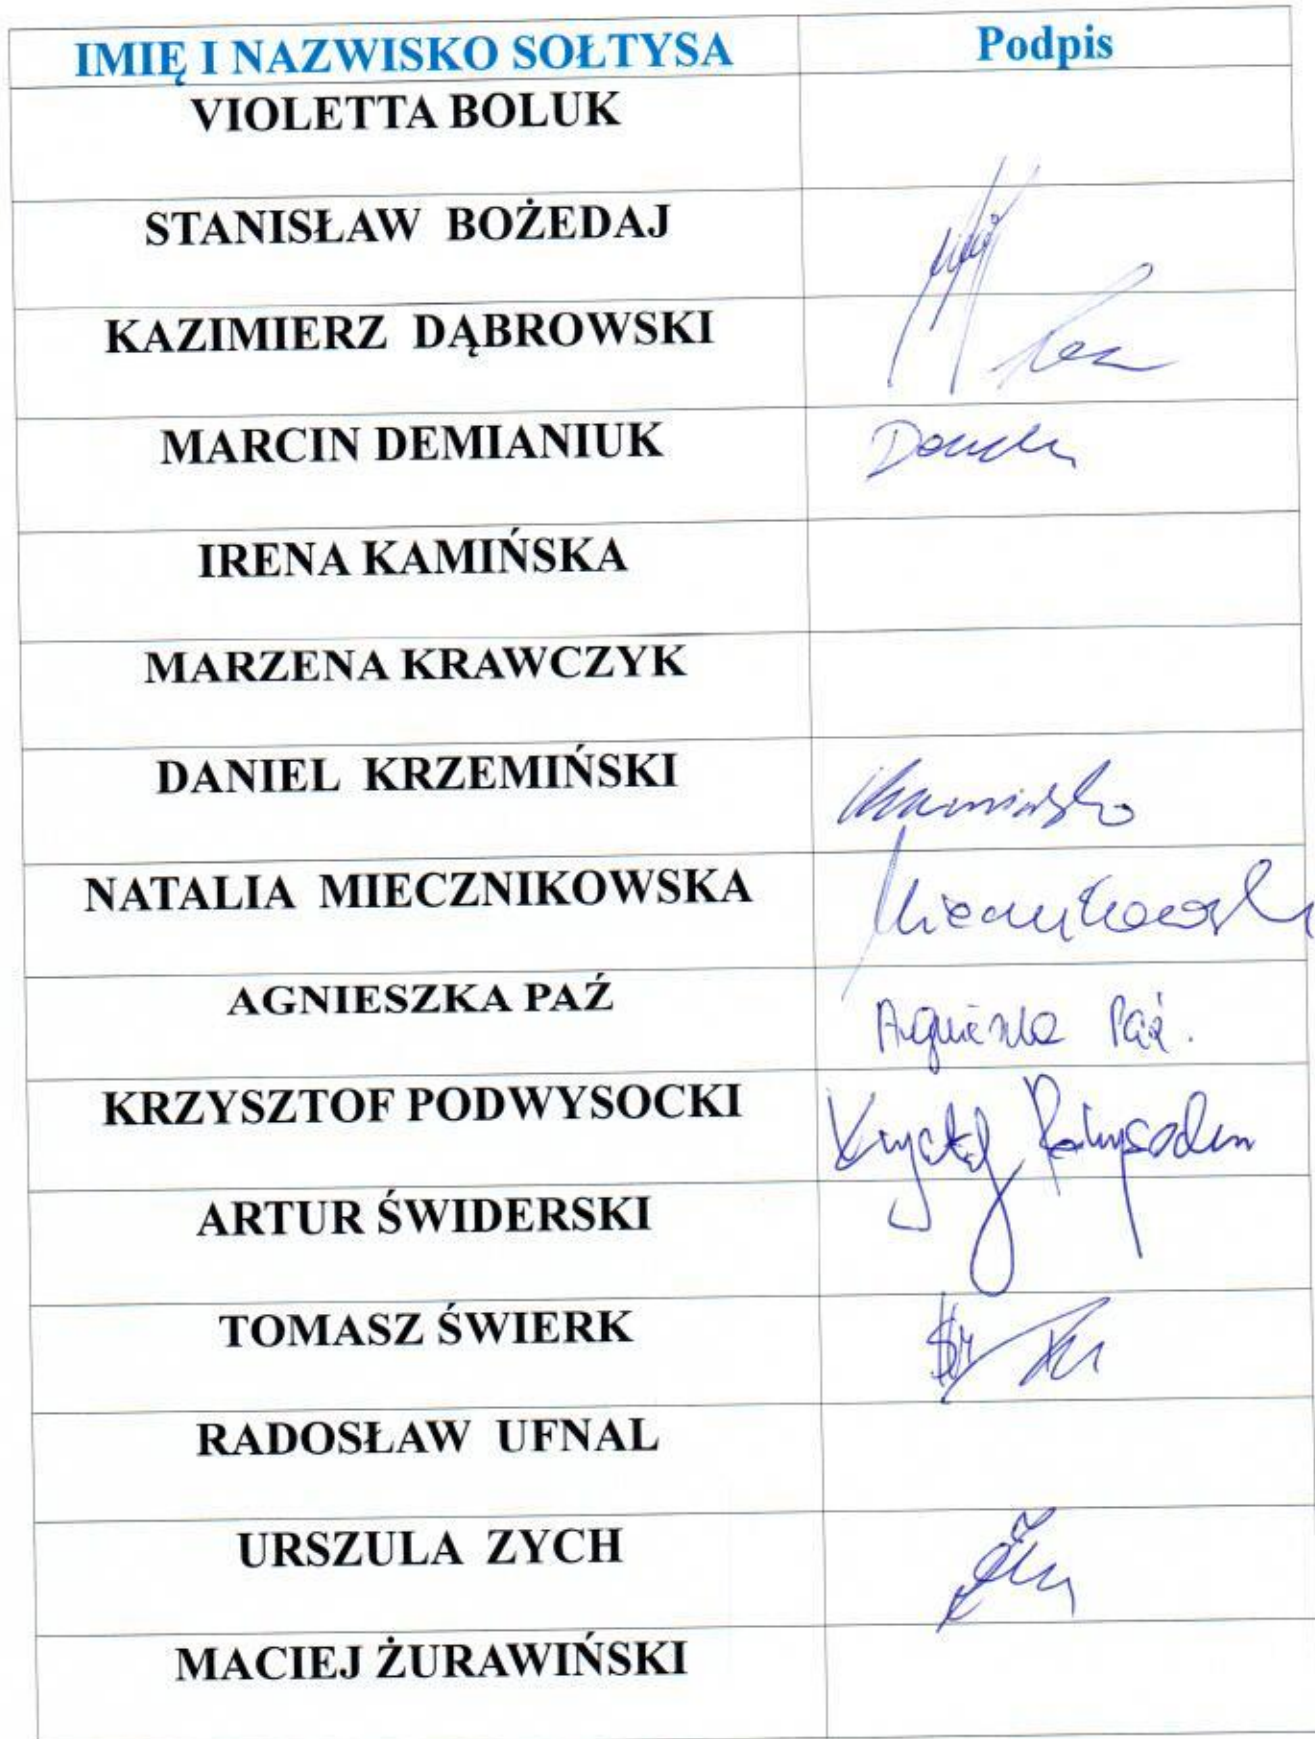 IMIĘ I NAZWISKO SOŁTYSA Podpis
VIOLETTA BOLUK
STANISŁAW BOŻEDAJ
KAZIMIERZ DĄBROWSKI
MARCIN DEMIANIUK
IRENA KAMIŃSKA
MARZENA KRAWCZYK
DANIEL KRZEMIŃSKI
NATALIA MIECZNIKOWSKA
AGNIESZKA PAŹ Agnieszka Paź.
KRZYSZTOF PODWYSOCKI
ARTUR ŚWIDERSKI
TOMASZ ŚWIERK
RADOSŁAW UFNAL
URSZULA ZYCH
MACIEJ ŻURAWIŃSKI